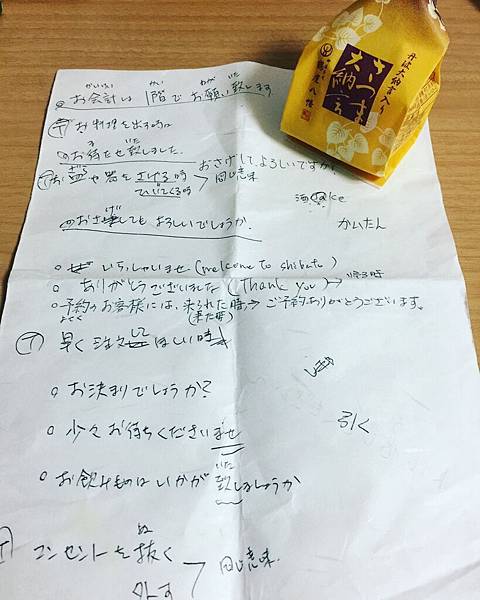 かいけい かい ねがい いた
お会計は 1階でお願い致します
㋐ お料理を出す時
お待たせ致しました.
お皿や器を下げる時
ひいてくる時
同じ意味
おさげしてよろしいですか?
おさげしてもよろしいでしょうか.
酒 sake
かいたん
いらっしゃいませ (welcome to shibuto)
ありがとうございました (Thank you) → 帰る時
予約のお客様には、来られた時→ご予約ありがとうございます。
よやく (来た時)
早く注文してほしい時
お決まりでしょうか?
少々お待ちくださいませ
引く
いた
お飲みものはいかが致しましょうか
ぬ
コンセントを抜く
外す
同じ意味.
丹波大納言入り
さつま
大納言